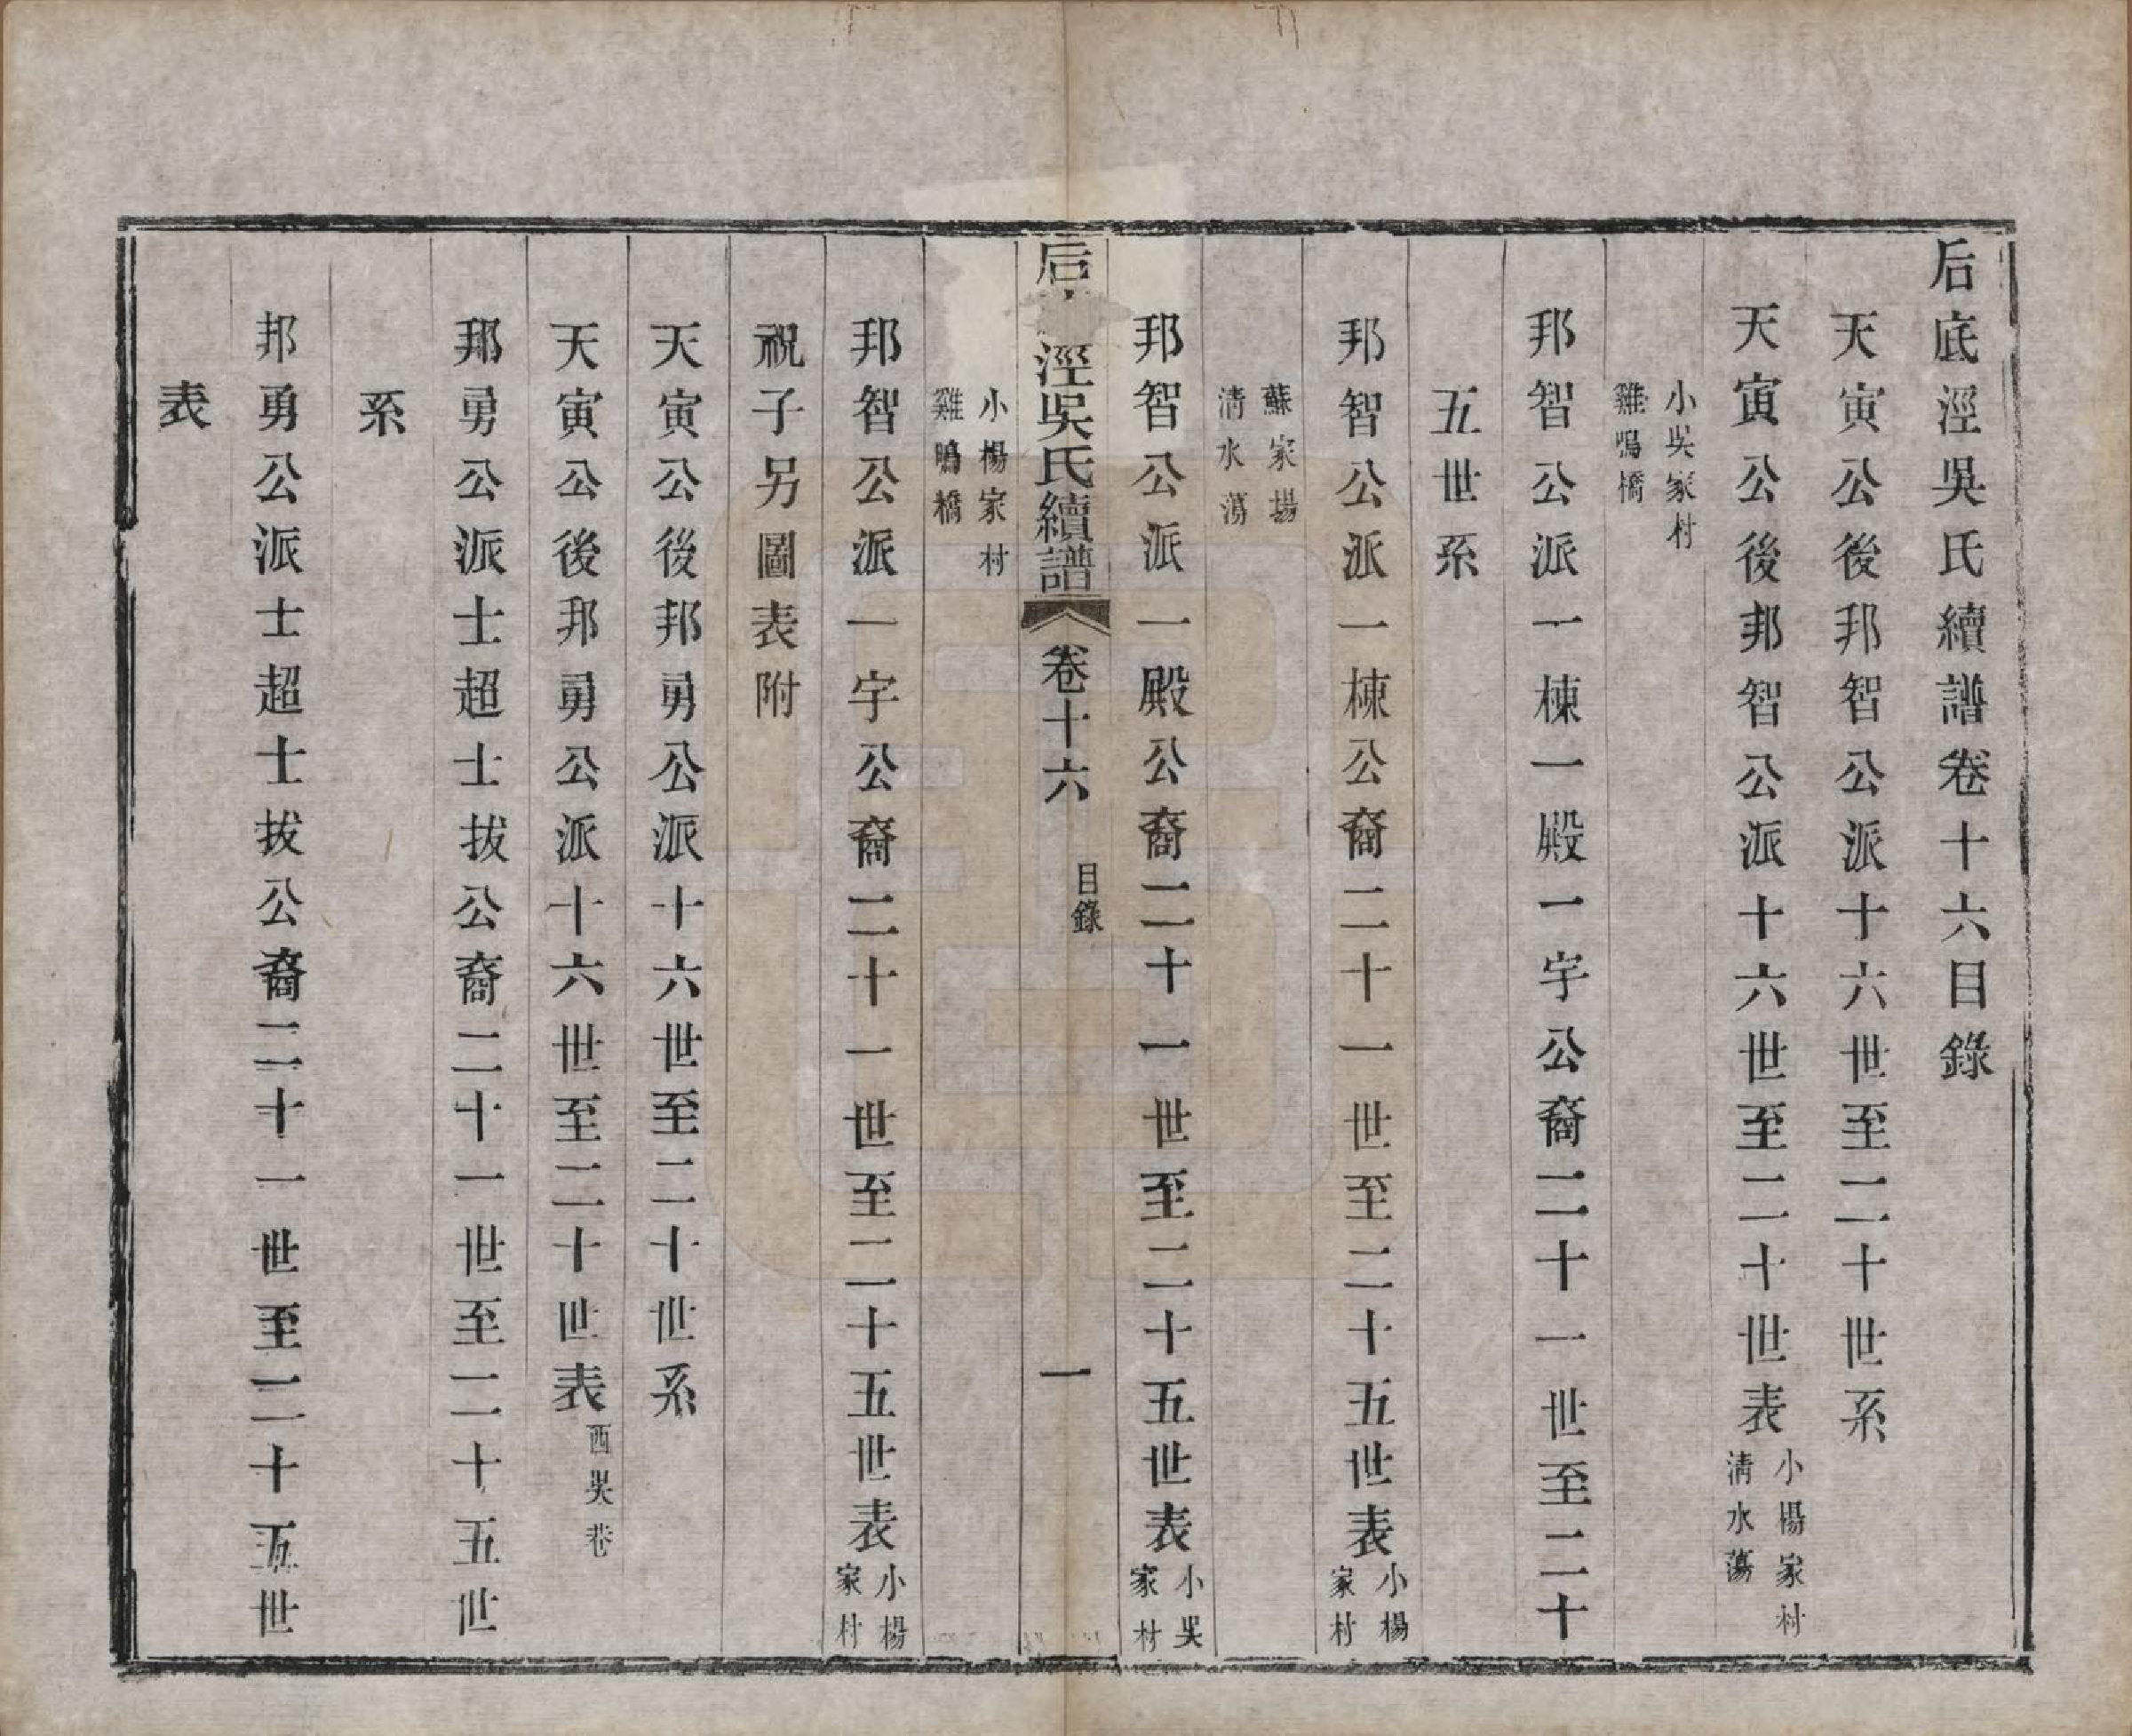 后底涇吳氏續譜卷十六目錄
天寅公後邦智公派十六世至二十世系
天寅公後邦智公派十六世至二十世表 小楊家村 清水蕩
小吳家村 雞鳴橋
邦智公派一棟一殿一宇公裔二十一世至二十
五世系
邦智公派一棟公裔二十一世至二十五世表 小楊家村
蘇家場 清水蕩
邦智公派一殿公裔二十一世至二十五世表 小吳家村
后 涇吳氏續譜 卷十六 目錄 一
小楊家村 雞鳴橋
邦智公派一宇公裔二十一世至二十五世表 小楊家村
祝子另圖表附
天寅公後邦勇公派十六世至二十世系
天寅公後邦勇公派十六世至二十世表 西吳巷
邦勇公派士超士拔公裔二十一世至二十五世
系
邦勇公派士超士拔公裔二十一世至二十五世
表